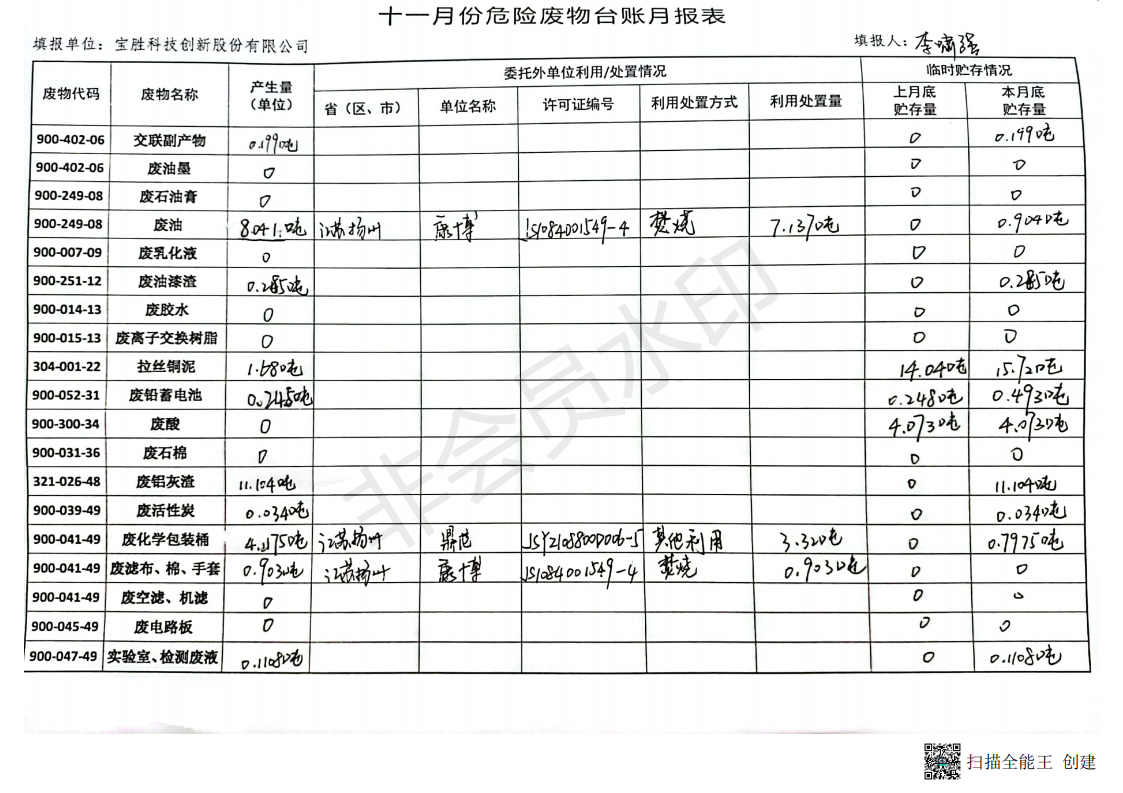 十一月份危险废物台账月报表
填报单位：宝胜科技创新股份有限公司 填报人：李啸强
废物代码 废物名称 产生量（单位） 委托外单位利用/处置情况 临时贮存情况
省（区、市） 单位名称 许可证编号 利用处置方式 利用处置量 上月底贮存量 本月底贮存量
900-402-06 交联副产物 0.1990吨 0 0.1990吨
900-402-06 废油墨 0 0 0
900-249-08 废石油膏 0 0 0
900-249-08 废油 8.0410吨 江苏扬州 康博 JS1084001549-4 焚烧 7.1370吨 0 0.9040吨
900-007-09 废乳化液 0 0 0
900-251-12 废油漆渣 0.2850吨 0 0.2850吨
900-014-13 废胶水 0 0 0
900-015-13 废离子交换树脂 0 0 0
304-001-22 拉丝铜泥 1.680吨 14.040吨 15.720吨
900-052-31 废铅蓄电池 0.2450吨 0.2480吨 0.4930吨
900-300-34 废酸 0 4.0730吨 4.0730吨
900-031-36 废石棉 0 0 0
321-026-48 废铝灰渣 11.104吨 0 11.104吨
900-039-49 废活性炭 0.0340吨 0 0.0340吨
900-041-49 废化学包装桶 4.1175吨 江苏扬州 其他利用 3.320吨 0 0.7975吨
900-041-49 废滤布、棉、手套 0.9030吨 江苏扬州 康博 JS1084001549-4 焚烧 0.9030吨 0 0
900-041-49 废空滤、机滤 0 0 0
900-045-49 废电路板 0 0 0
900-047-49 实验室、检测废液 0.1080吨 0 0.1080吨
非会员水印
扫描全能王 创建